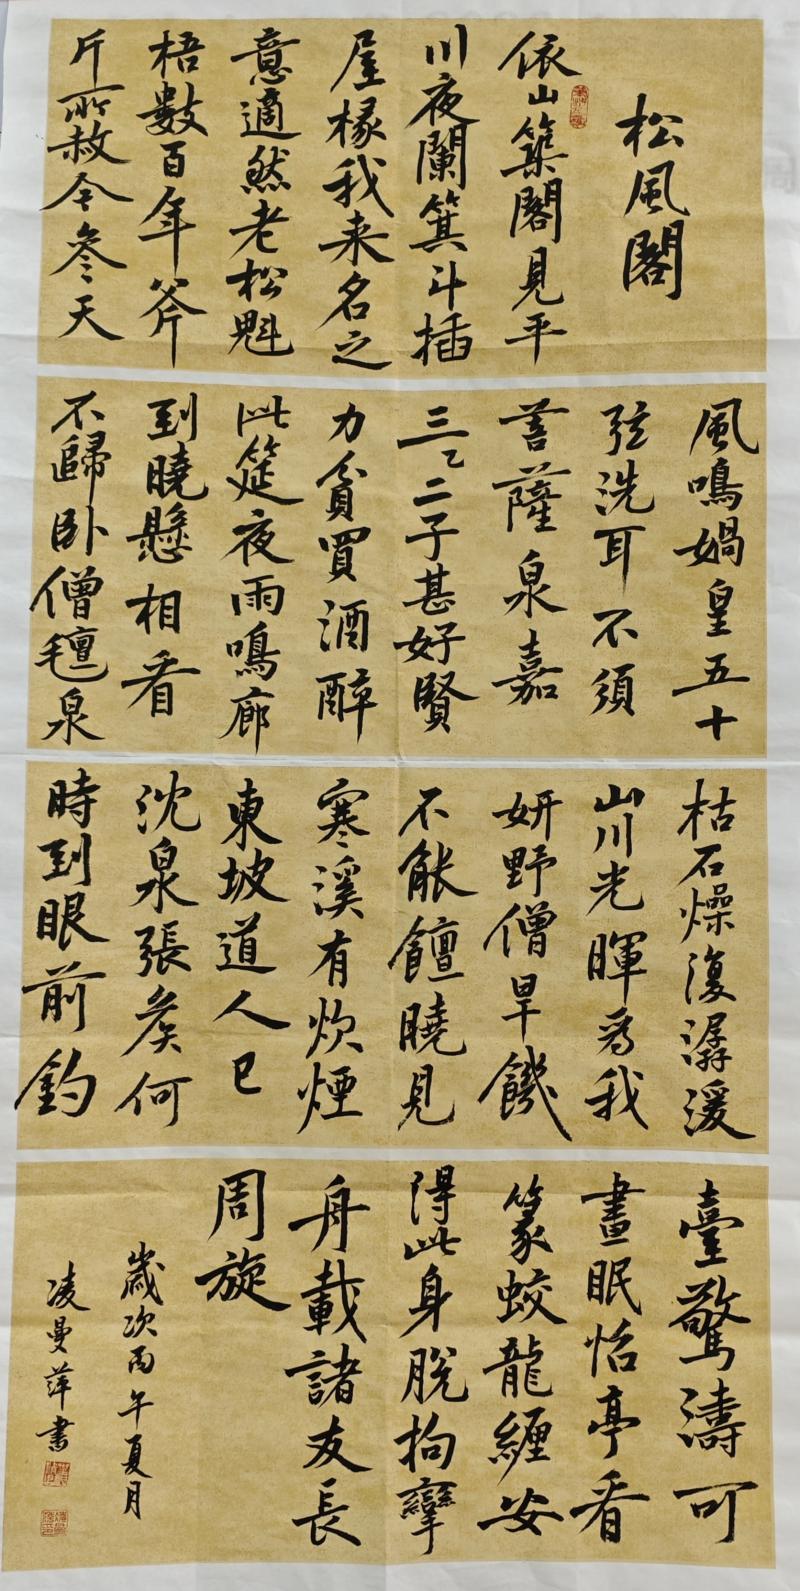 松風閣
依山築閣見平
川夜闌箕斗插
屋椽我来名之
意適然老松魁
梧數百年斧
斤所赦今參天
風鳴媧皇五十
弦洗耳不須
菩薩泉嘉
三乙二子甚好賢
力貧買酒醉
此筵夜雨鳴廊
到曉懸相看
不歸卧僧氊泉
枯石燥復潺湲
山川光暉為我
妍野僧旱饑
不能饘曉見
寒溪有炊煙
東坡道人已
沈泉張矦何
時到眼前釣
臺驚濤可
晝眠怡亭看
篆蛟龍纏安
得此身脫拘攣
舟載諸友長
周旋
歲次丙午夏月
凌曼萍書